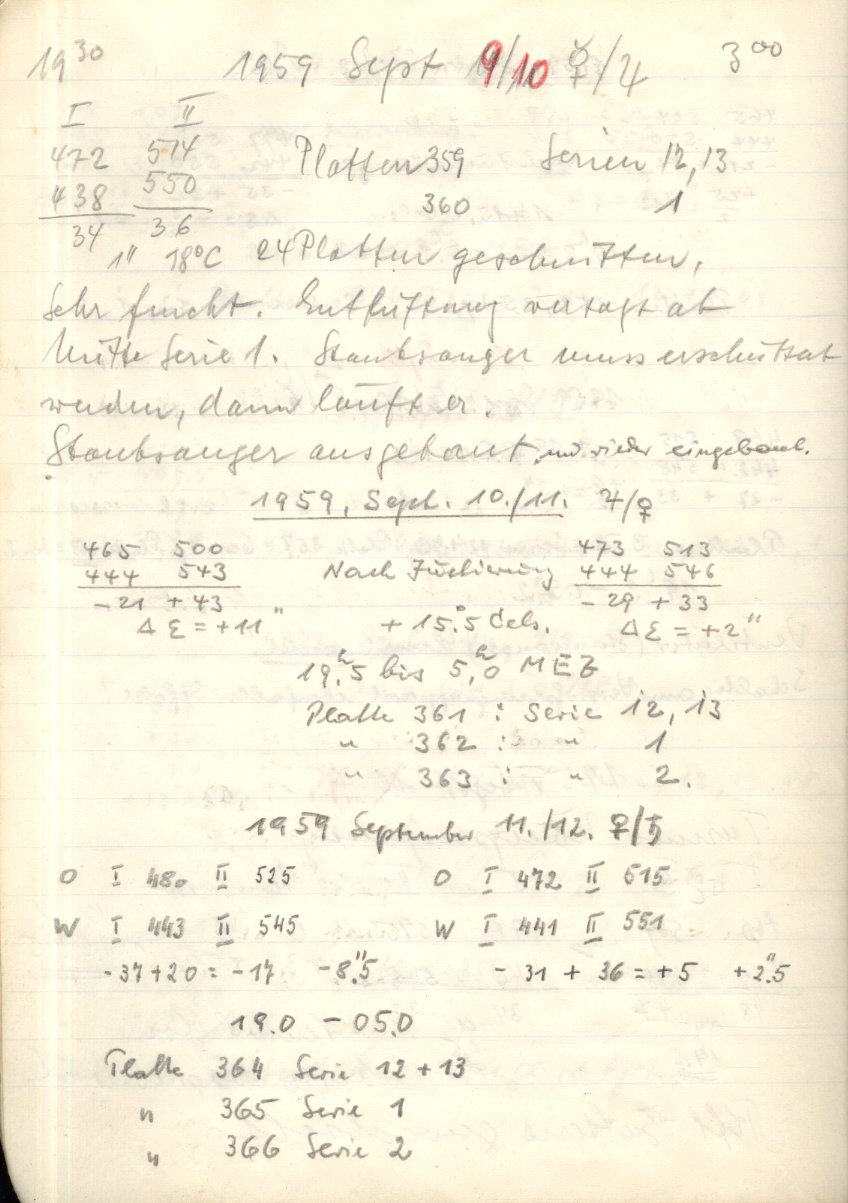 19³⁰ 1959 Sept 9/10 ☿/♃ 3⁰⁰
I II
472 514 Platten 359 Serien 12, 13
438 550 360 1
34 36
1" 18°C 24 Platten geschnitten,
Sehr feucht. Entlüftung versagt ab
Mitte Serie 1. Staubsauger muss erschüttert
werden, dann läuft er.
Staubsauger ausgebaut und wieder eingebaut.
1959, Sept. 10./11. ♃/♀
465 500 473 513
444 543 Nach Justierung 444 546
-21 +43 -29 +33
Δ Σ = +11" +15.°5 Cels. Δ Σ = +2"
19.ʰ5 bis 5.ʰ0 MEZ
Platte 361 : Serie 12, 13
" 362 : " 1
" 363 : " 2.
1959 September 11./12. ♀/♄
O I 480 II 525 O I 472 II 515
W I 443 II 545 W I 441 II 551
-37+20 = -17 -8."5 -31 + 36 = +5 +2."5
19.0 - 05.0
Platte 364 Serie 12 + 13
" 365 Serie 1
" 366 Serie 2